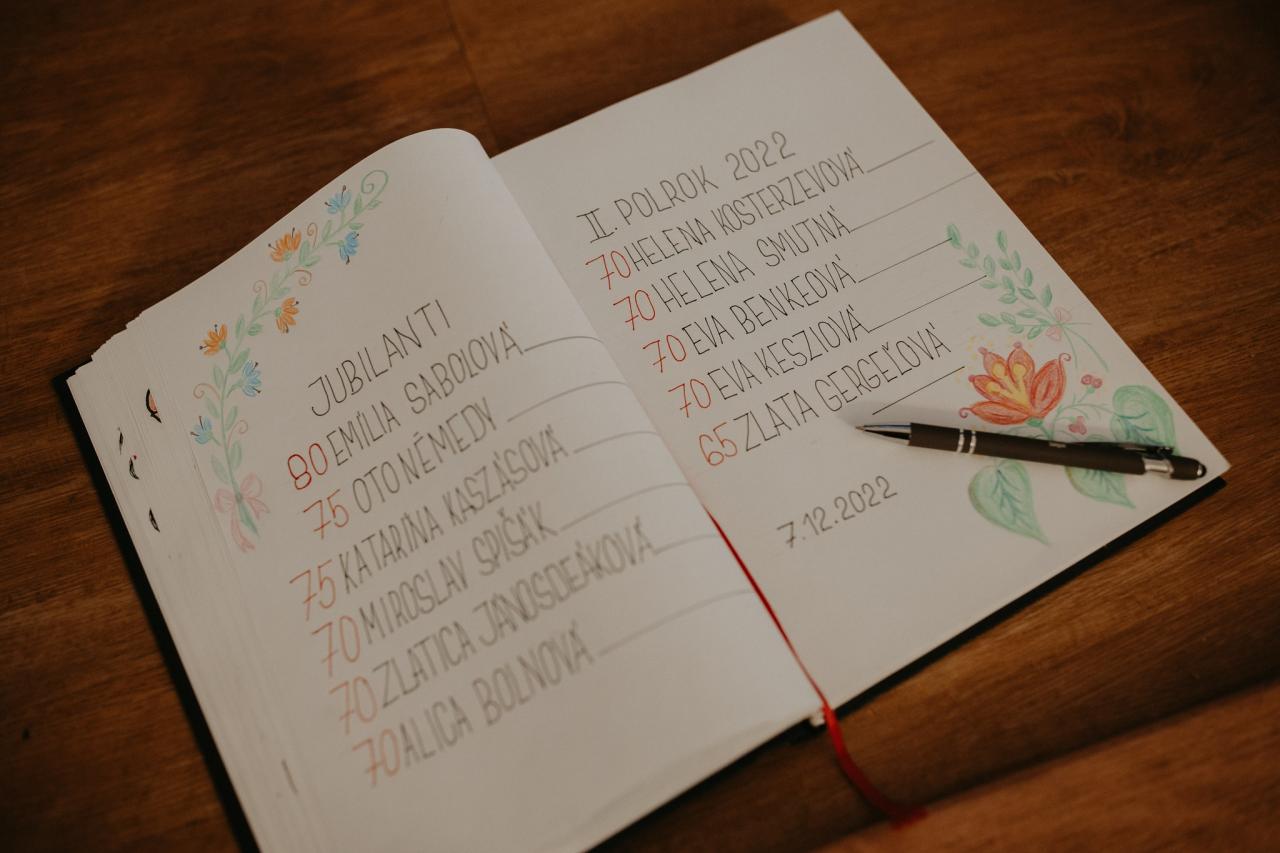 JUBILANTI
80 EMÍLIA SABOLOVÁ
75 OTO NÉMEDY
75 KATARÍNA KASZÁSOVÁ
70 MIROSLAV SPIŠÁK
70 ZLATICA JÁNOSDEÁKOVÁ
70 ALICA BOLNOVÁ
II. POLROK 2022
70 HELENA KOSTERZEVOVÁ
70 HELENA SMUTNÁ
70 EVA BENKEOVÁ
70 EVA KESZIOVÁ
65 ZLATA GERGEĽOVÁ
7.12.2022